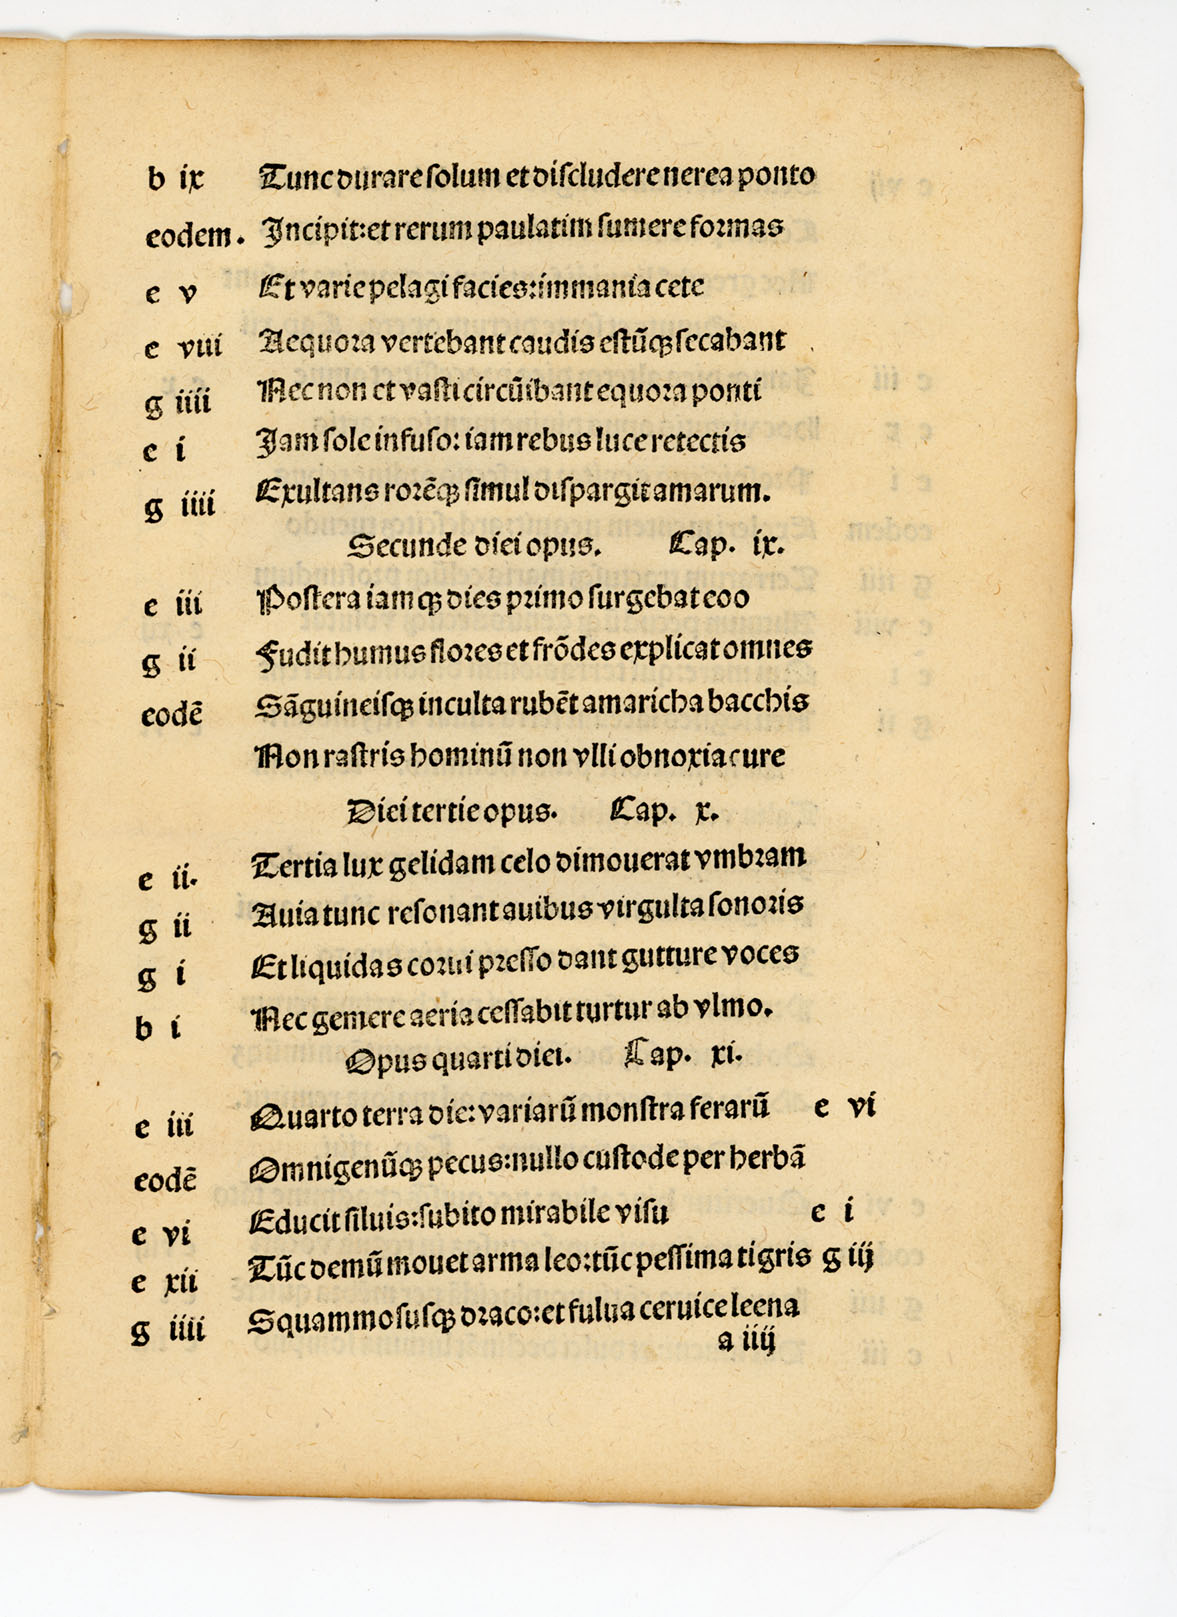 b ix Tunc durare solum et discludere nerea ponto
eodem. Incipit: et rerum paulatim sumere formas
e v Et varie pelagi facies: immania cete
e viii Aequora vertebant caudis estūꝗ secabant
g iiii Nec non et vasti circūibant equora ponti
e i Iam sole infuso: iam rebus luce retectis
g iiii Exultans rorēꝗ simul dispargit amarum.
Secunde diei opus. Cap. ix.
e iii Postera iamꝗ dies primo surgebat eoo
g ii Fudit humus flores et frōdes explicat omnes
eodē Sāguineisꝗ inculta rubēt amaricha bacchis
Non rastris hominū non vlli obnoxia cure
Diei tertie opus. Cap. x.
e ii. Tertia lux gelidam celo dimouerat vmbram
g ii Auia tunc resonant auibus virgulta sonoris
g i Et liquidas corui presso dant gutture voces
b i Nec gemere aeria cessabit turtur ab vlmo.
Opus quarti diei. Cap. xi.
e iii Quarto terra die: variarū monstra ferarū e vi
eodē Omnigenūꝗ pecus: nullo custode per herbā
e vi Educit siluis: subito mirabile visu e i
e xii Tūc demū mouet arma leo: tūc pessima tigris g iij
g iiii Squammosusꝗ draco: et fulua ceruice leena
a iiij